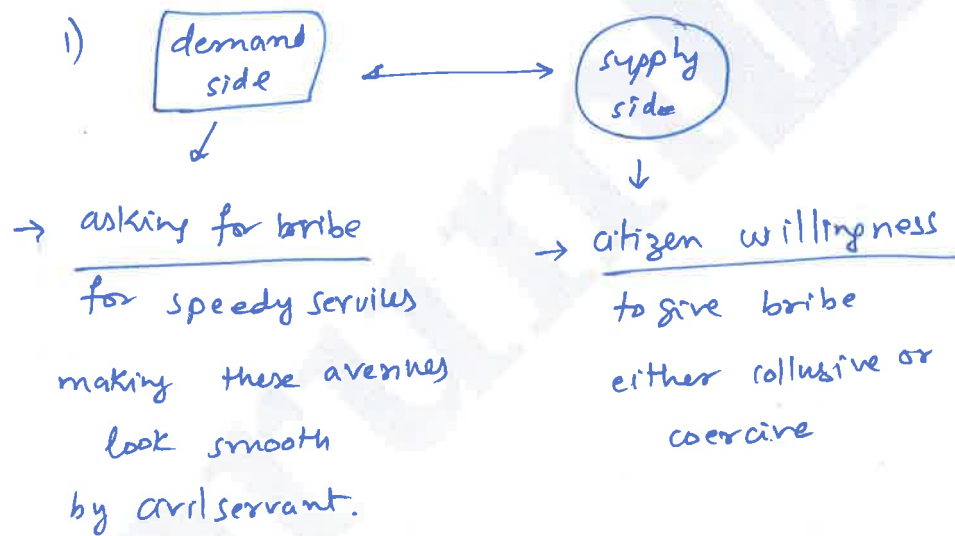 1)
demand
side
supply
side
→ asking for bribe
for speedy services
making these avenues
look smooth
by civil servant.
→ citizen willingness
to give bribe
either collusive or
coercive